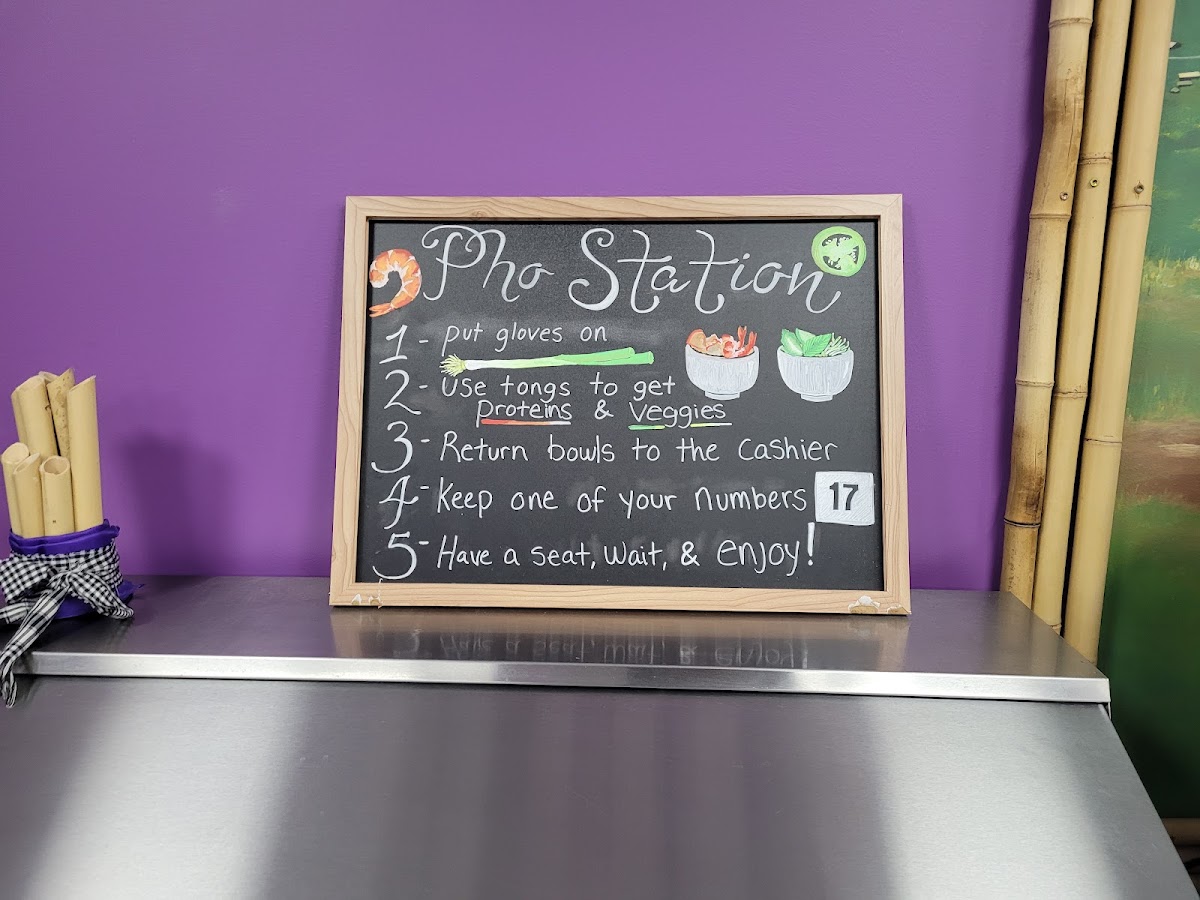 Pho Station
1 - Put gloves on
2 - Use tongs to get
Proteins & Veggies
3 - Return bowls to the cashier
4 - Keep one of your numbers 17
5 - Have a seat, wait, & enjoy!